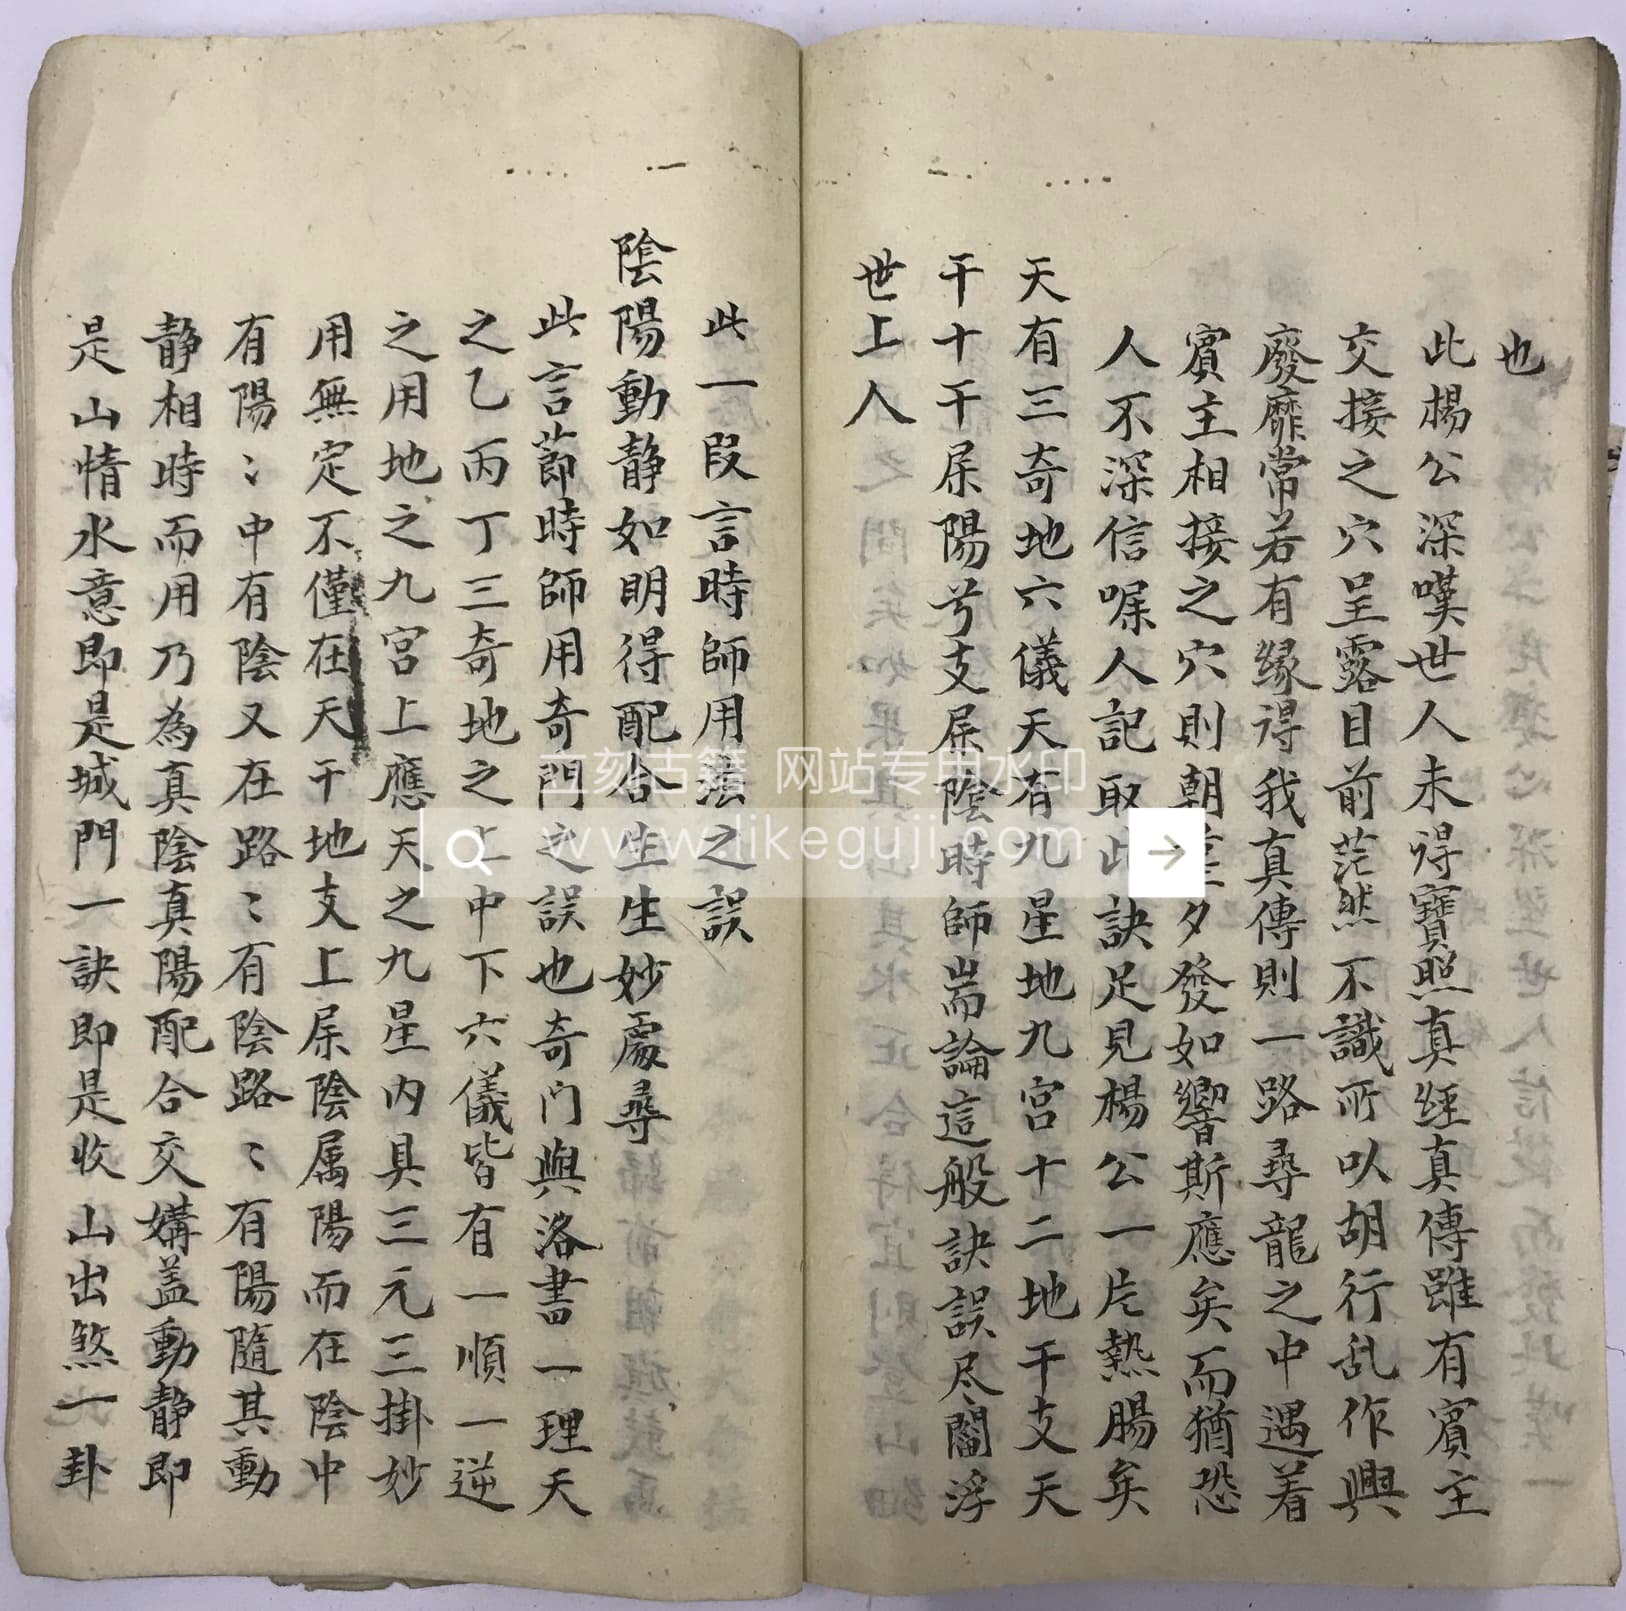 也
此楊公深嘆世人未得寶照真經真傳雖有賓主
交接之穴呈露目前茫然不識所以胡行乱作興
廢靡常若有緣得我真傳則一路尋龍之中遇着
賓主相接之穴則朝塟夕發如響斯應矣而猶恐
人不深信嘱人記取此訣足見楊公一片熱腸矣
天有三奇地六儀天有九星地九宮十二地干支天
干十干属陽兮支属陰時師耑論這般訣誤尽閻浮
世上人
此一段言時師用法之誤
陰陽動静如明得配合生生妙處尋
此言莭時師用奇門之誤也奇门與洛書一理天
之乙丙丁三奇地之上中下六儀皆有一順一逆
之用地之九宮上應天之九星内具三元三掛妙
用無定不僅在天干地支上属陰属陽而在陰中
有陽〻中有陰又在路〻有陰路〻有陽隨其動
静相時而用乃為真陰真陽配合交媾盖動静即
是山情水意即是城門一訣即是收山出煞一卦
立刻古籍 网站专用水印
www.likeguji.com